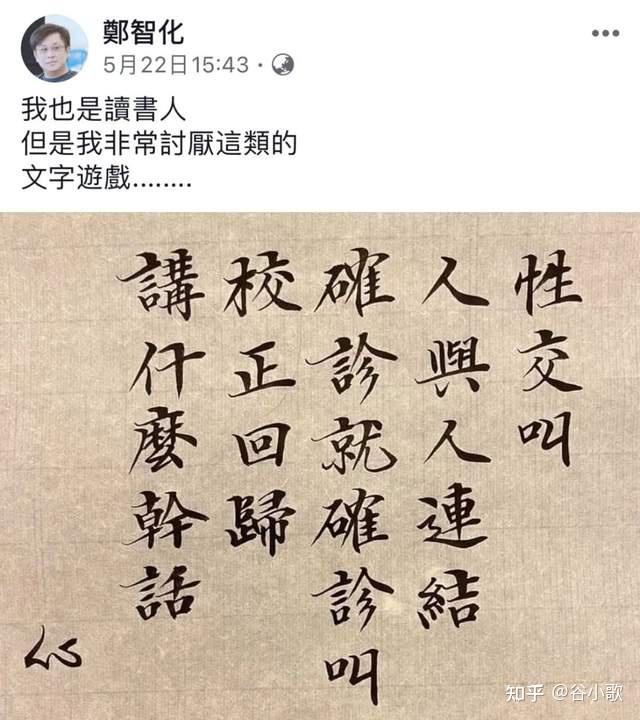 鄭智化
5月22日15:43
我也是讀書人
但是我非常討厭這類的
文字遊戲........
性交叫
人與人連結
確診就確診叫
校正回歸
講什麼幹話
知乎 @谷小歌